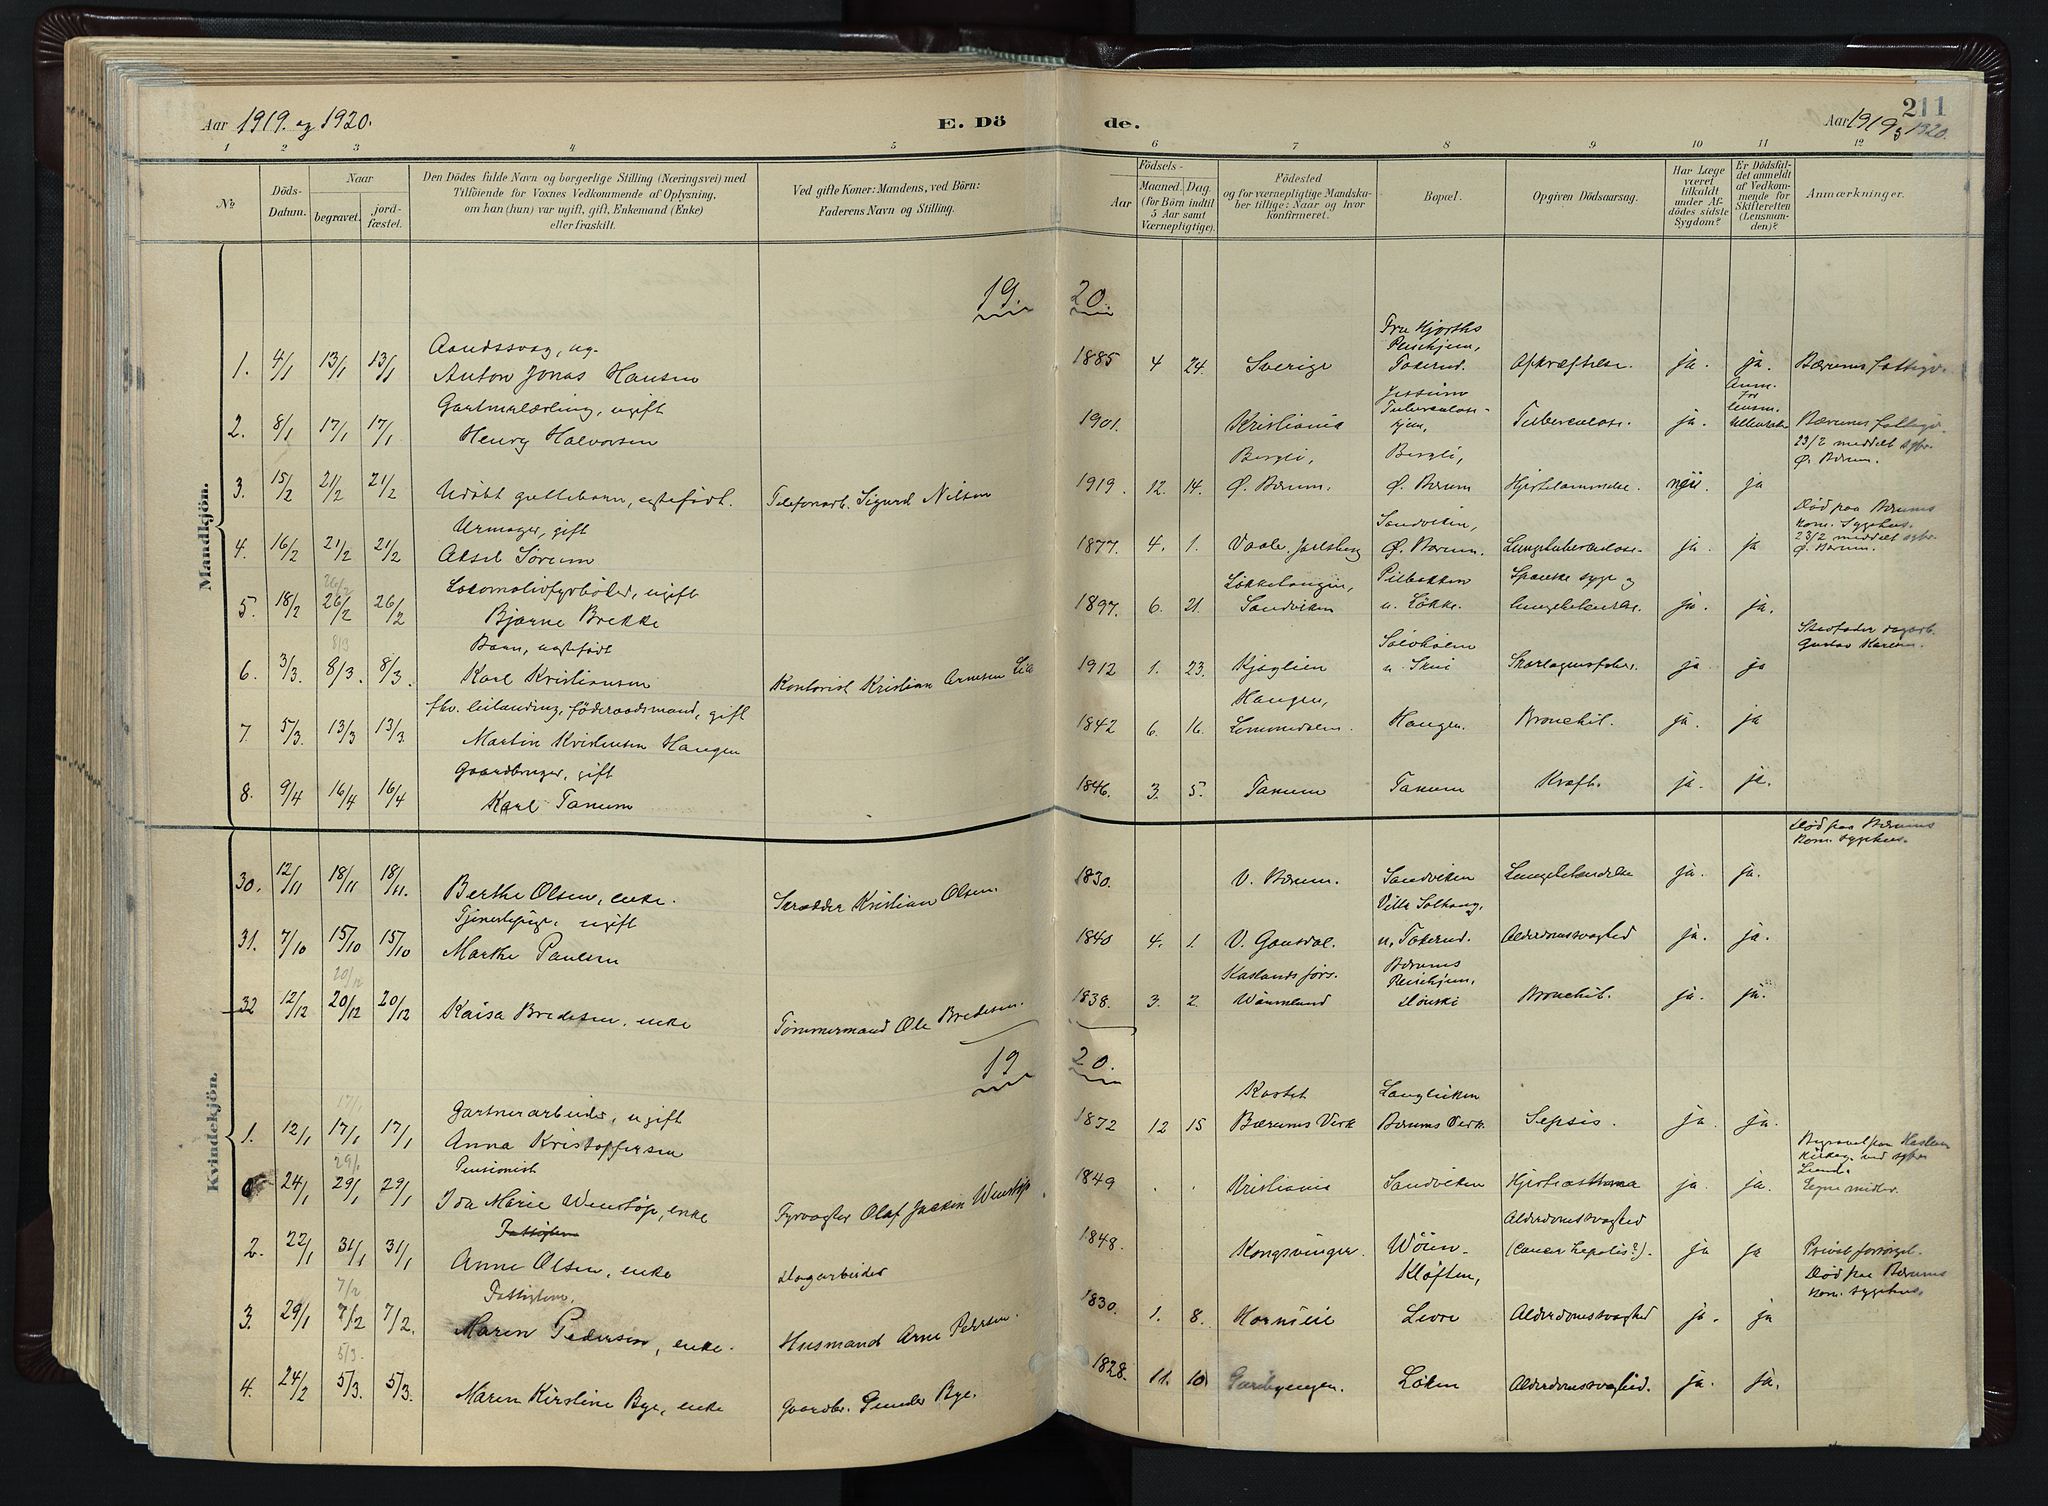 211
Aar 1919. og 1920. E. Dö de. Aar 1919 1920.
1 2 3 4 5 6 7 8 9 10 11 12
No
Döds-Datum.
Naar
begravet.
jord-fæstet.
Den Dödes fulde Navn og borgerlige Stilling (Næringsvei) med
Tilföiende for Voxnes Vedkommende af Oplysning,
om han (hun) var ugift, gift, Enkemand (Enke)
eller fraskilt.
Ved gifte Koner: Mandens, ved Börn:
Faderens Navn og Stilling.
Födsels-
Aar
Maaned. Dag
(for Börn indtil
5 Aar samt
Værnepligtige).
Födested
og for værnepligtige Mandska-
ber tillige: Naar og hvor
konfirmeret.
Bopæl.
Opgiven Dödsaarsag.
Har Læge
været
tilkaldt
under Af-
dödes sidste
Sygdom?
Er Dödsfal-
det anmeldt
af Vedkom-
mende for
Skifteretten
(Lensman-
den)?
Anmærkninger.
Mandkjön.
19. 20.
Aandssvag, ug. Fru Hjorths
Pleiehjem,
1. 4/1 13/1 13/1 Anton Jonas Hansen 1885 4 24. Sverige Tokerud. Afkræftelse. ja. ja. Bærums fattigv.
Gartnerlærling, ugift Tuberculose- Anm. for lensm.
2. 8/1 17/1 17/1 Henry Halvorsen 1901. Kristiania hjem, Tuberculose. ja. Bærums fattigv.
Bergli, Bergli, 23/2 meddelt
Ø. Bærum.
3. 15/2 21/2 21/2 Udøbt guttebarn, egtefødt. Telefonarb. Sigurd Nilsen 1919. 12. 14. Ø. Bærum. Ø. Bærum Hjertelammelse. nei. ja
Urmager, gift Sandviken, Død paa Bærums
kom. Sygehus.
4. 16/2 21/2 21/2 Aksel Sørum 1877. 4. 1. Vaale, Jarlsberg Ø. Bærum. Lungetuberculose. ja. ja 23/2 meddelt
Ø. Bærum.
26/2 Lokomotivfyrbøder, ugift Løkkehaugen, Pilbakken Spanske syge og
5. 18/2 26/2 26/2 Bjarne Brekke 1897. 6. 21. Sandviken u. Løkke. lungebetændelse. ja. ja.
8/3 Barn, egtefødt Solvholm Stedfader
6. 3/3. 8/3. 8/3. Karl Kristiansen Kontorist Kristian Arnesen Lie 1912 1. 23. Kjaglien u. Skui Skarlagensfeber. ja. ja Gustav
fhv. leilending, føderaadsmand, gift Haugen,
7. 5/3. 13/3 13/3. Martin Kristensen Haugen 1842 6. 16. Lommedalen. Haugen. Bronchit. ja. ja
Gaardbruger, gift
8. 9/4 16/4 16/4 Karl Tanum 1846. 3. 5. Tanum Tanum Kræft. ja. ja.
Kvindekjön.
Død paa Bærums
kom. sygehus.
30. 12/11 18/11 18/11. Berthe Olsen, enke. Skrædder Kristian Olsen. 1830. V. Bærum. Sandviken Lungebetændelse ja. ja.
Tjenestepige, ugift Villa Solhaug,
31. 7/10 15/10 15/10 Marthe Paulsen 1840 4. 1. V. Gausdal. u. Tokerud. Alderdomssvaghed ja. ja.
20/12 Bærums
Pleiehjem,
32 12/12 20/12 20/12 Kaisa Bredesen, enke Tømmermand Ole Bredesen. 1838. 3. 2. Wärmland Dønski Bronchit. ja. ja.
19 20.
17/1 Gartnerarbeider, ugift
1. 12/1 17/1 17/1 Anna Kristoffersen 1872 12 15 Bærums Verk Bærums Verk Sepsis. ja. ja.
29/1 Pensionist Begravet paa Haslum
24/1 29/1 29/1 Ida Marie Wenstøp, enke Fyrvogter Olaf Joakim Wenstøp. 1849 . . Kristiania Sandviken Hjerteasthma ja. ja. Egne midler.
Alderdomssvaghed
2. 22/1 31/1 31/1 Anne Olsen, enke Dagarbeider 1848. Kongsvinger. Wøien. (Cancer hepatis?). ja ja Privat forsørget.
7/2 Kløften, Død paa Bærums
kom. sygehus.
3. 29/1 7/2 7/2. Maren Pedersen, enke. Husmand Arne Pedersen. 1830. 1. 8. Horneie Levre Alderdomssvaghed ja. ja
5/3.
4. 24/2 5/3. 5/3. Maren Kirstine Bye, enke Gaardbr. Gunder Bye. 1828. 11. 10. Løken Alderdomssvaghed. ja. ja.